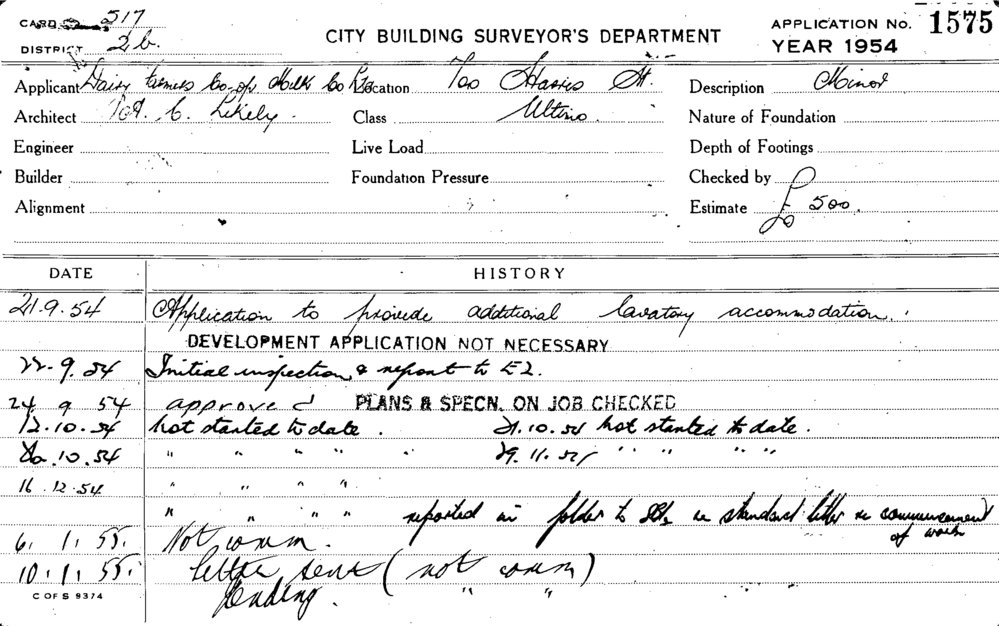 CARD 517
DISTRICT 2b.
CITY BUILDING SURVEYOR'S DEPARTMENT
APPLICATION No. 1575
YEAR 1954
Applicant Dairy Farmers Co-op Milk Co Ltd Location Harris St. Description Minor
Architect C. Likely. Class Ultimo. Nature of Foundation
Engineer Live Load Depth of Footings
Builder Foundation Pressure Checked by
Alignment Estimate £ 500.
DATE HISTORY
21.9.54 Application to provide additional lavatory accommodation.
DEVELOPMENT APPLICATION NOT NECESSARY
22.9.54 Initial inspection & report to E2.
24 9 54 approved PLANS & SPECN. ON JOB CHECKED
12.10.54 Not started to date. 21.10.54 Not started to date.
10.54 " " " " 29.11.54 " " " " "
16.12.54 " " " "
" " " " reported in folder to re standard letter re commencement of work
6. 1. 55. Not comm.
10.1.55. letter sent (not comm)
Pending. " "
C OF S 9374